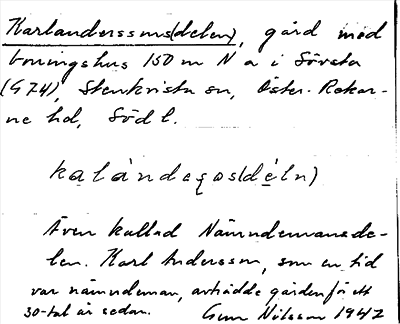 Karlanderssons(delen), gård med
boningshus 150 m N a i Sörsta
(G 74), Stenkvista sn, Öster-Rekar-
ne hd, Södl.
kalàndeʂos(déln)
Även kallad Nämndemansde-
len. Karl Andersson, som en tid
var nämndeman, avträdde gården för ett
30-tal år sedan. Gun Nilsson 1942